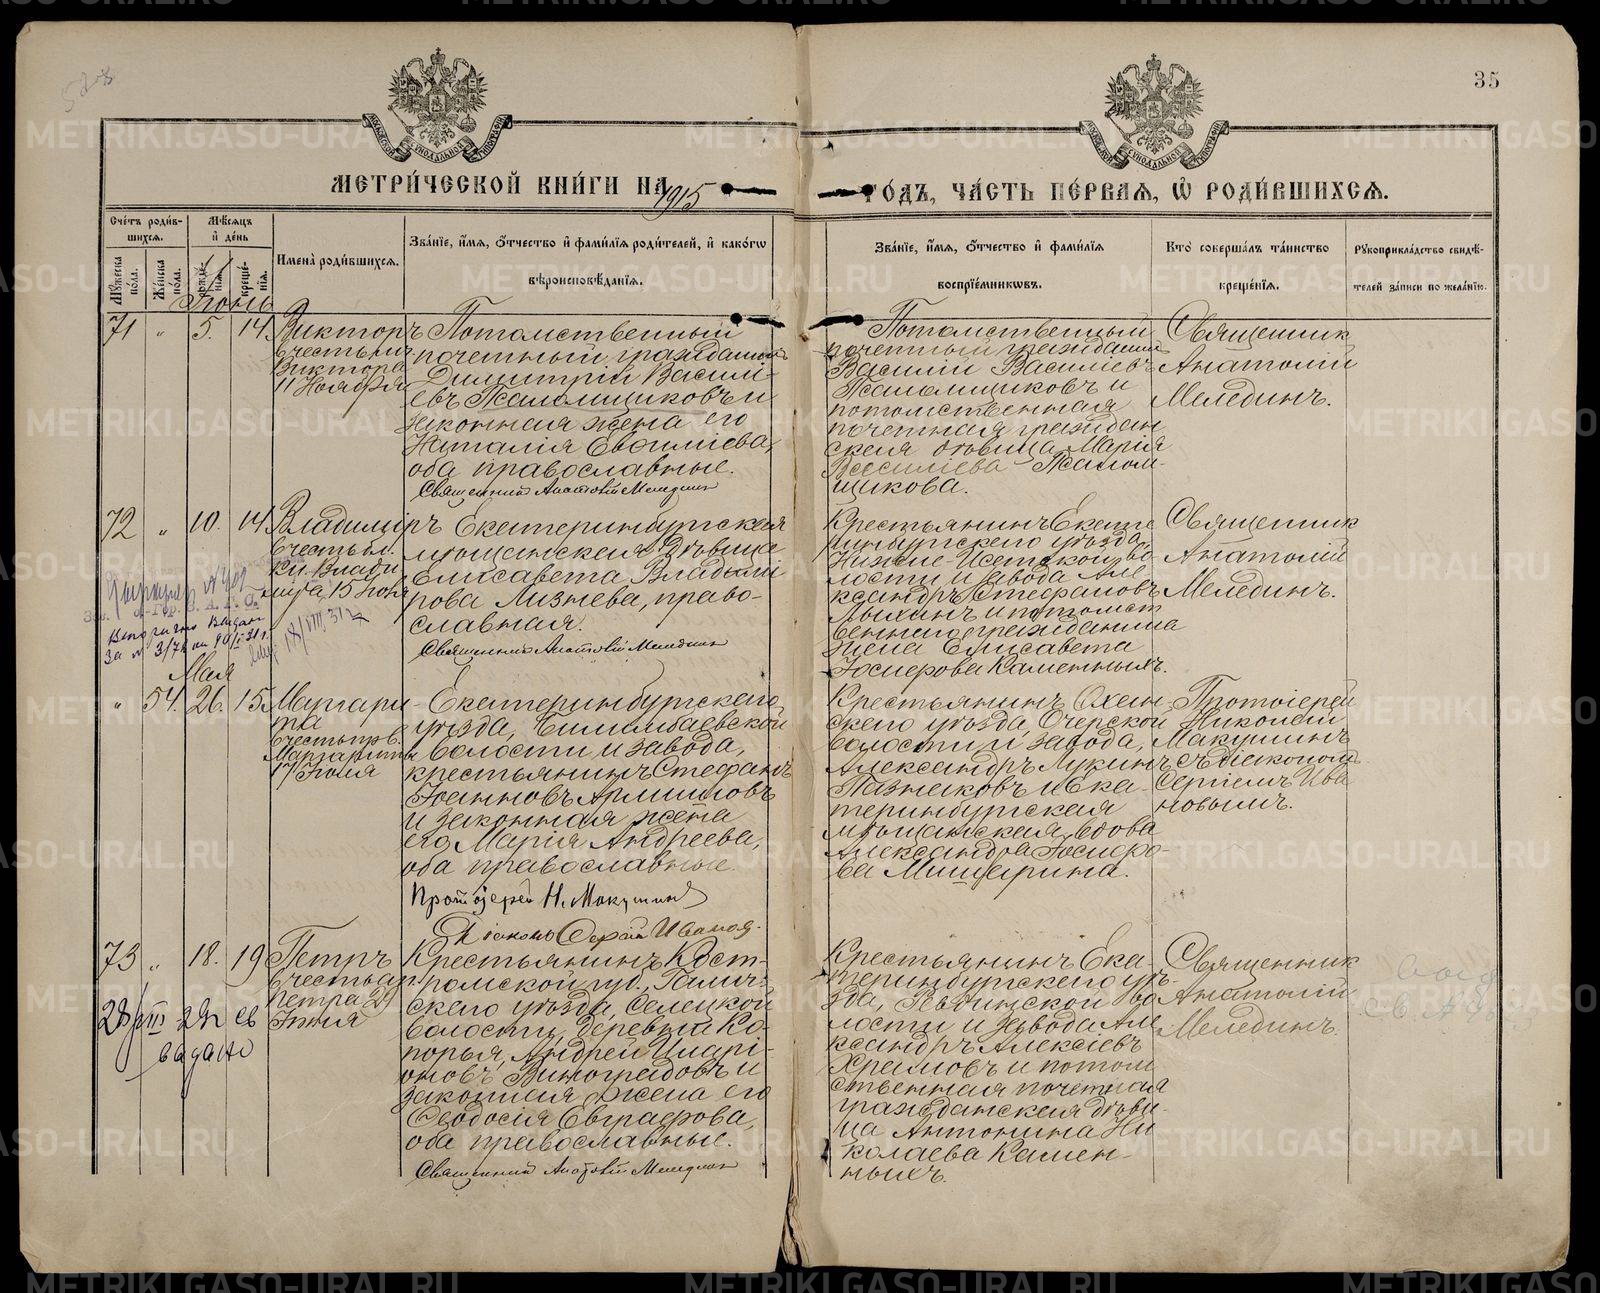 35
МЕТРИ́ЧЕСКОЙ КНИ́ГИ НА 1915
ГО́ДЪ, ЧА́СТЬ ПЕ́РВАЯ, Ѡ РОДИ́ВШИХСЯ.
Сче́тъ роди́вшихся.
Мѣ́сяцъ и де́нь
Имена̀ роди́вшихся.
Зва́нїе, и́мя, о́тчество и фами́лїя роди́телей, и како́гѡ вѣроисповѣ́данїя.
Зва́нїе, и́мя, о́тчество и фами́лїя воспрїе́мникѡвъ.
Кто̀ соверша́лъ та́инство креще́нїя.
Рꙋкоприкла́дство свидѣ́телей за́писи по жела́нїю.
Мꙋ́жеска по́ла.
Же́нска по́ла.
рожде́нїя.
креще́нїя.
Іюнь
71 " 5. 14.
Викторъ
въ честь муч.
Виктора
11 Ноября
Потомственный
почетный гражданин
Димитрій Василі-
евъ Псаломщиковъ и
законная жена его
Наталія Евфиміева,
оба православные.
Священникъ Анатолій Мелединъ
Потомственный
почетный гражданин
Василій Василіевъ
Псаломщиковъ и
потомственная
почетная граждан
ская дѣвица Марія
Василіева Псалом-
щикова.
Священник
Анатолій
Мелединъ.
72 " 10. 14
Владимiръ
въ честь бл.
кн. Влади
мiра 15 Іюля
Екатеринбургская
мѣщанская дѣвица
Елисавета Владимі
рова Лизнева, право-
славная.
Священникъ Анатолій Мелединъ
Крестьянинъ Екате
ринбургского уѣзда,
Нижне-Исетской во-
лости и завода Але
ксандръ Стефановъ
Лыхинъ и потомст
веннаго гражданина
жена Елисавета
Іосифова Каменныхъ.
Священник
Анатолій
Мелединъ.
Мая
" 54. 26. 15
Маргари
та
въ честь прв.
Маргариты
17 Іюля
Екатеринбургского
уѣзда, Билимбаевской
волости и завода,
крестьянинъ Стефанъ
Іоанновъ Армишовъ
и законная жена
его Марія Андреева,
оба православные.
Протоіерей Н. Макушинъ
Діаконъ Сергій Ивановъ.
Крестьянинъ Охан-
скаго уѣзда, Очерской
волости и завода,
Александръ Лукинъ
Пазниковъ и Ека-
теринбургская
мѣщанская вдова
Александра Іосифо-
ва Мищерина.
Протоіерей
Николай
Макушинъ
съ діакономъ
Сергіемъ Ива
новымъ.
73 " 18. 19
Петръ
въ честь ап.
Петра 29
Іюня
28/VIII
выдано
Крестьянинъ Кост-
ромской губ., Галич-
скаго уѣзда, Селецкой
волости, деревни Ко-
порья, Андрей Иларі-
оновъ Виноградовъ и
законная жена его
Феодосія Евграфова,
оба православные.
Священникъ Анатолій Мелединъ
Крестьянинъ Ека-
теринбургского уѣ-
зда, Невьинской во
лости и завода Але
ксандръ Алексіевъ
Храмовъ и потом
ственная почетная
гражданская дѣви-
ца Антонина Ни
колаева Камен-
ныхъ.
Священник
Анатолій
Мелединъ.
METRIKI.GASO-URAL.RU